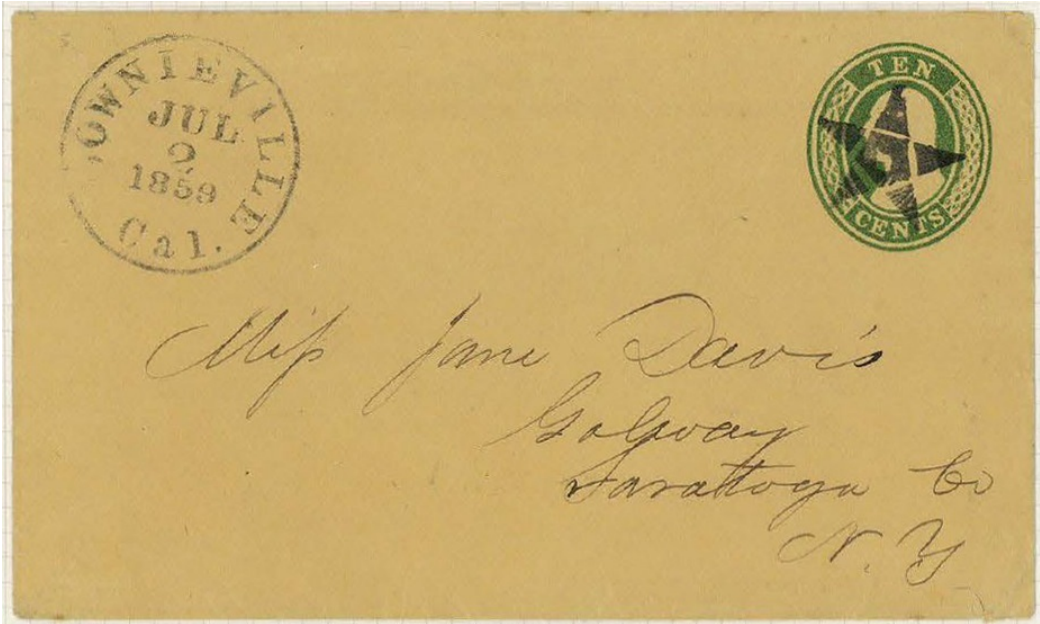 OWNIEVILLE
JUL
2
1859
Cal.
TEN
CENTS
Miss Jane Davis
Galway
Saratoga Co
N. Y